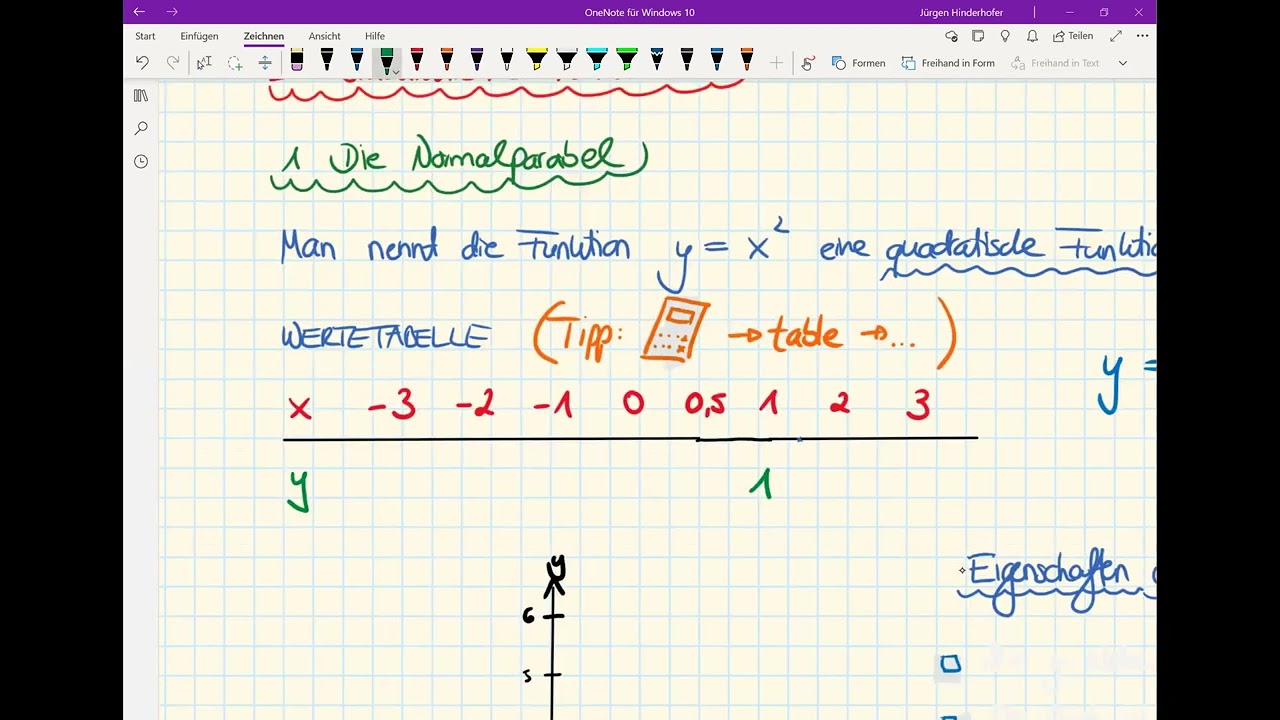 OneNote für Windows 10
Jürgen Hinderhofer
Start Einfügen Zeichnen Ansicht Hilfe
Teilen
Formen Freihand in Form Freihand in Text
1 Die Normalparabel
Man nennt die Funktion y = x² eine quadratische Funktio
WERTETABELLE (Tipp: → table → ... )
y =
x -3 -2 -1 0 0,5 1 2 3
y 1
y
Eigenschaften
6
5